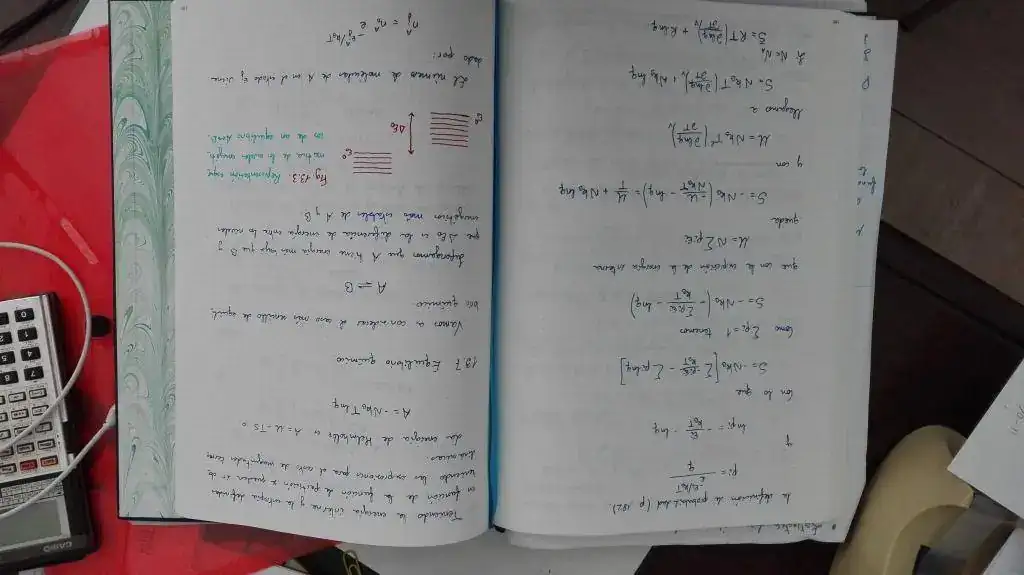 la definición de probabilidad (p. 192).
pi = e^(-εi/kBT) / q
y
ln pi = - εi/kBT - ln q
Con lo que
S = -NkB [Σ -piεi/kBT - Σ pi ln q]
Como Σ pi = 1 tenemos
S = -NkB (- Σ piεi/kBT - ln q)
que con la expresión de la energía interna
U = N Σ piεi
queda
S = -NkB (- U/NkBT - ln q) = U/T + NkB ln q
y con
U = NkBT² (∂ln q/∂T)V
llegamos a
S = NkBT (∂ln q/∂T)V + NkB ln q
Si N = NA
S̄ = RT (∂ln q/∂T)V + R ln q.
Teniendo la energía interna y la entropía definidas
en función de la función de partición q quedan
expresiones para el resto de magnitudes termo
dinámicas.
La energía de Helmholtz es A = U - TS o
A = -NkBT ln q
13.7 Equilibrio químico
Vamos a considerar el caso más sencillo de equili
brio químico
A ⇌ B
Supongamos que A tiene energía más baja que B y
que ΔE0 es la diferencia de energía entre los niveles
energéticos más estables de A y B
Fig 13.3. Representación esque
mática de los niveles energéti
cos de un equilibrio A⇌B.
ΔE0
El número de moléculas de A en el estado εj viene
dado por:
njA = n0A e^(-εjA/kBT)
CASIO
0
1
2
4
5
7
8